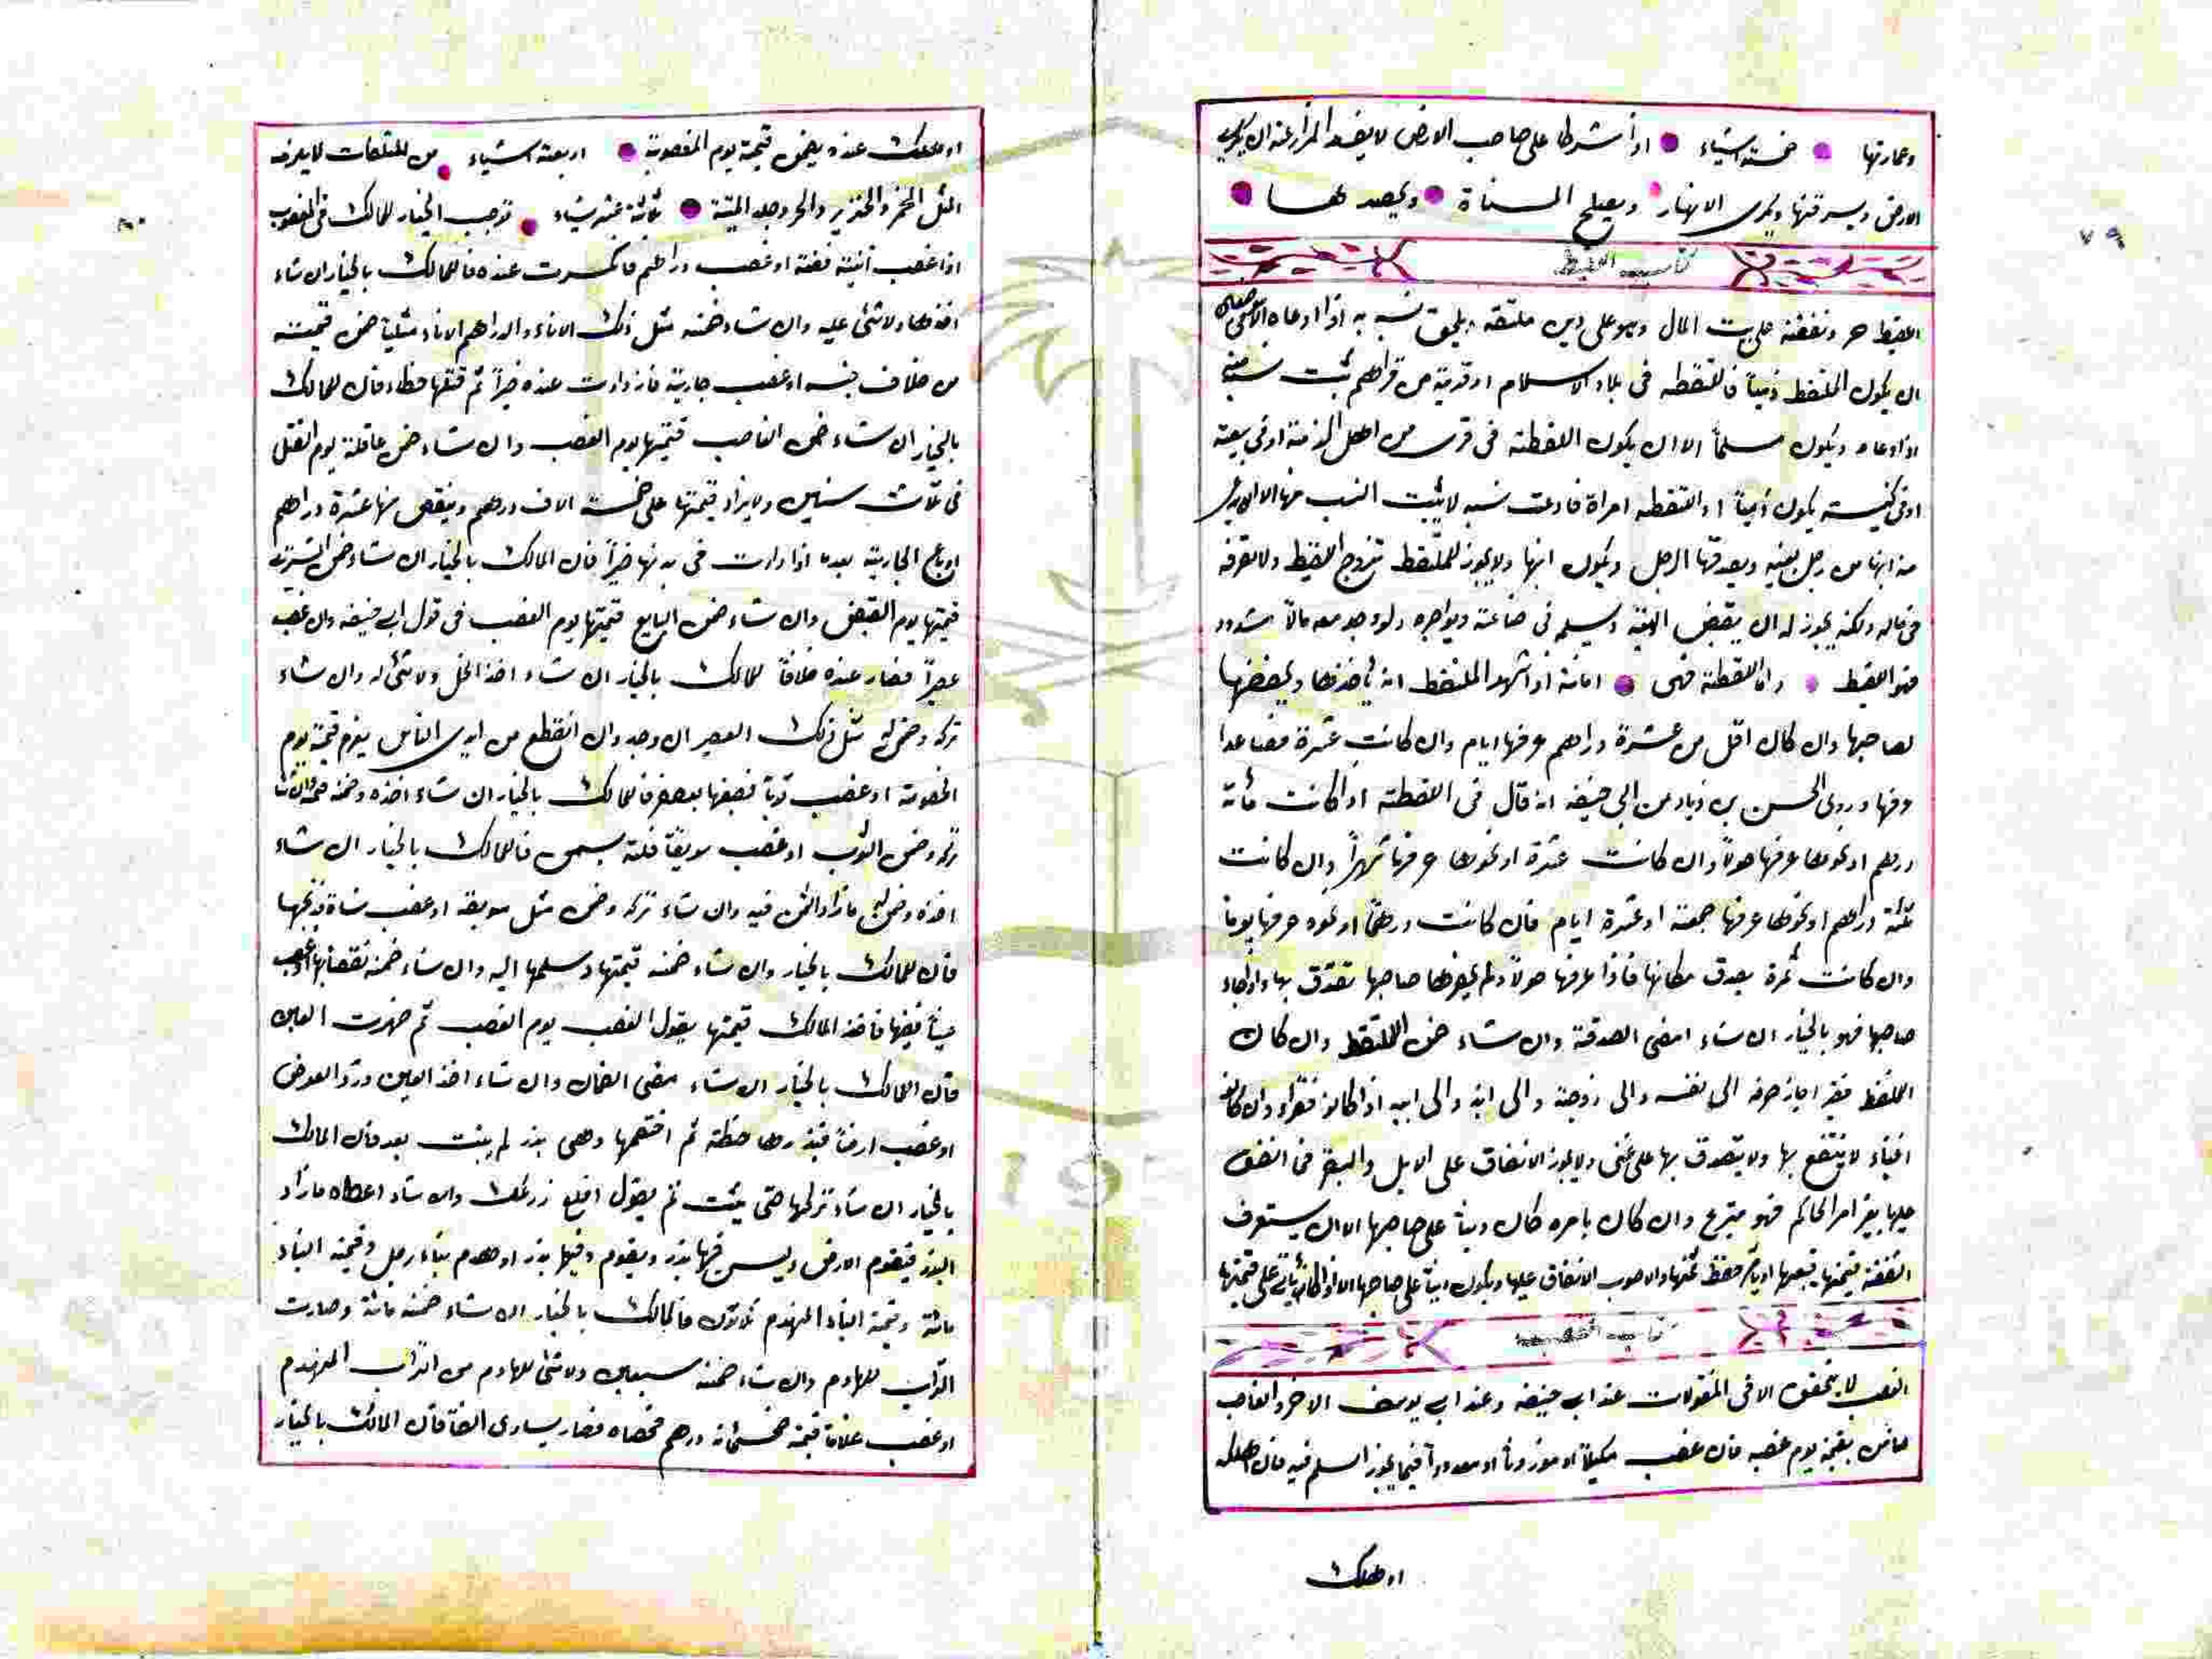 وعمارتها خمسة اشياء اذا شرطا على صاحب الارض لا يفسد المزارعة ان يكرب
الارض ويسرقنها ويكرى الانهار ويصلح المسناة ويحصد لهما
كتاب اللقيط
اللقيط حر ونفقته على بيت المال وهو على دين ملتقطه يلحق نسبه به اذا ادعاه
ان يكون الملتقط ذمياً فالتقطه فى بلاد الاسلام او قرية من قراهم ثبت نسبه منه
اذا ادعاه ويكون مسلماً الا ان يكون اللقطة فى قرى من اهل الذمة او فى بيعة
او فى كنيسة يكون ذمياً او التقطه امراة فادعت نسبه لا يثبت النسب منها الا ان
منه ابنها من رجل بعينه ويصدقها الرجل ويكون ابنها ولا يجوز للملتقط تزوج اللقيط ولا تصرفه
فى ماله ولكنه يجوز له ان يقبض الهبة ويسلمه فى صناعة ويواجره ولو وجد معه مالا مشدود
فهو اللقيط واما اللقطة فهى امانة اذا اشهد الملتقط انه ياخذها ويحفظها
لصاحبها وان كان اقل من عشرة دراهم عرفها ايام وان كانت عشرة فصاعدا
عرفها وروى الحسن بن زياد عن ابى حنيفه انه قال فى اللقطة اذا كانت مأتة
درهم او نحوها عرفها حولاً وان كانت عشرة او نحوها عرفها شهراً وان كانت
ثلثة دراهم او نحوها عرفها جمعة او عشرة ايام فان كانت درهماً او نحوه عرفها يوما
وان كانت ثمرة يصدق مكانها فاذا عرفها حولاً ولم يعرفها صاحبها تصدق بها واذا جاء
صاحبها فهو بالخيار ان شاء امضى الصدقة وان شاء ضمن الملتقط وان كان
الملتقط فقيرا جاز صرفه الى نفسه والى زوجته والى ابنه والى ابيه اذا كانو فقراء وان كانو
اغنياء لا ينتفع بها ولا يتصدق بها على غنى ولا يجوز الانفاق على الابل والبقر فما انفق
عليها بغير امر الحاكم فهو متبرع وان كان بامره كان ديناً على صاحبها الا ان يستعرف
النفقة قيمتها فيبيعها او يامر حفظ ثمنها والاصوب الانفاق عليها ويكون ديناً على صاحبها الا اذا على قيمتها
كتاب الغصب
الغصب لا يتحقق الا فى المنقولات عند ابى حنيفه وعند ابى يوسف الاخر والغاصب
ضامن بقيمة يوم غصبه فان غصب مكيلاً او موزوناً او معدوداً فيما يجوز السلم فيه فان
او هلك
او هلك عنده يضمن قيمة يوم المغصوبة اربعة اشياء من المتلفات لا يعرف
المثل الخمر والخنزير والحر وجلد الميتة ثلاثة عشر شياء توجب الخيار للمالك فى المغصوب
اذا غصب آنية فضة او غصب دراهم فانكسرت عنده فالمالك بالخيار ان شاء
اخذها ولا شئ عليه وان شاء ضمنه مثل ذلك الاناء والدراهم الاناء مثلياً ضمن قيمته
من خلاف جنسه او غصب جارية فازدادت عنده خيراً ثم قتلها خطاء فان للمالك
بالخيار ان شاء ضمن الغاصب قيمتها يوم الغصب وان شاء ضمن عاقلته يوم القتل
فى ثلاث سنين ولا يزاد قيمتها على خمسة الاف درهم وينقص منها عشرة دراهم
او باع الجارية بعد ما ازدادت فى بدنها خيراً فان المالك بالخيار ان شاء ضمن المشترى
قيمتها يوم القبض وان شاء ضمن البايع قيمتها يوم الغصب فى قول ابى حنيفه وان غصب
عصيراً فصار عنده خلافاً للمالك بالخيار ان شاء اخذ الخل ولا شئ له وان شاء
تركه وضمن له مثل ذلك العصير ان وجد وان انقطع من ايدى الناس يغرم قيمة يوم
الخصومة او غصب ثوباً فصبغها بعصفر فالمالك بالخيار ان شاء اخذه وضمنه
تركه وضمن الثوب او غصب سويقاً فلته بسمن فالمالك بالخيار ان شاء
اخذه وضمن له ما زاد السمن فيه وان شاء تركه وضمن مثل سويقه او غصب شاة فذبحها
فان للمالك بالخيار وان شاء ضمنه قيمتها وسلمها اليه وان شاء ضمنه نقصانها او غصب
عيناً فغيبها فاخذ المالك قيمتها بقول الغصب يوم الغصب ثم ظهرت العين
فان المالك بالخيار ان شاء مضى الضمان وان شاء اخذ العين ورد العوض
او غصب ارضاً فبذرها حنطة ثم اختصمها وهى بذر لم ينبت بعد فان المالك
بالخيار ان شاء تركها حتى ينبت ثم يقول اقلع زرعك وان شاء اعطاه ما زاد
البذر فيقوم الارض وليس فيها بذر ويقوم وفيها بذر او هدم بناء رجل وقيمة البناء
مائة وقيمة البناء المنهدم ثلاثون فالمالك بالخيار ان شاء ضمنه مائة وصارت
التراب للهادم وان شاء ضمنه سبعين ولا شئ للهادم من التراب المنهدم
او غصب غلاماً قيمته خمسمائة درهم فخصاه فصار يساوى الفاً فان المالك بالخيار